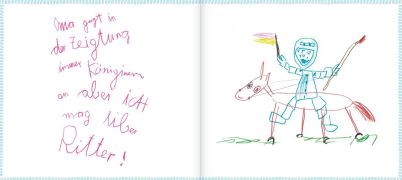 Oma gugt in
der Zeigtung
immer Königinnen
an aber ich
mag über
Ritter!